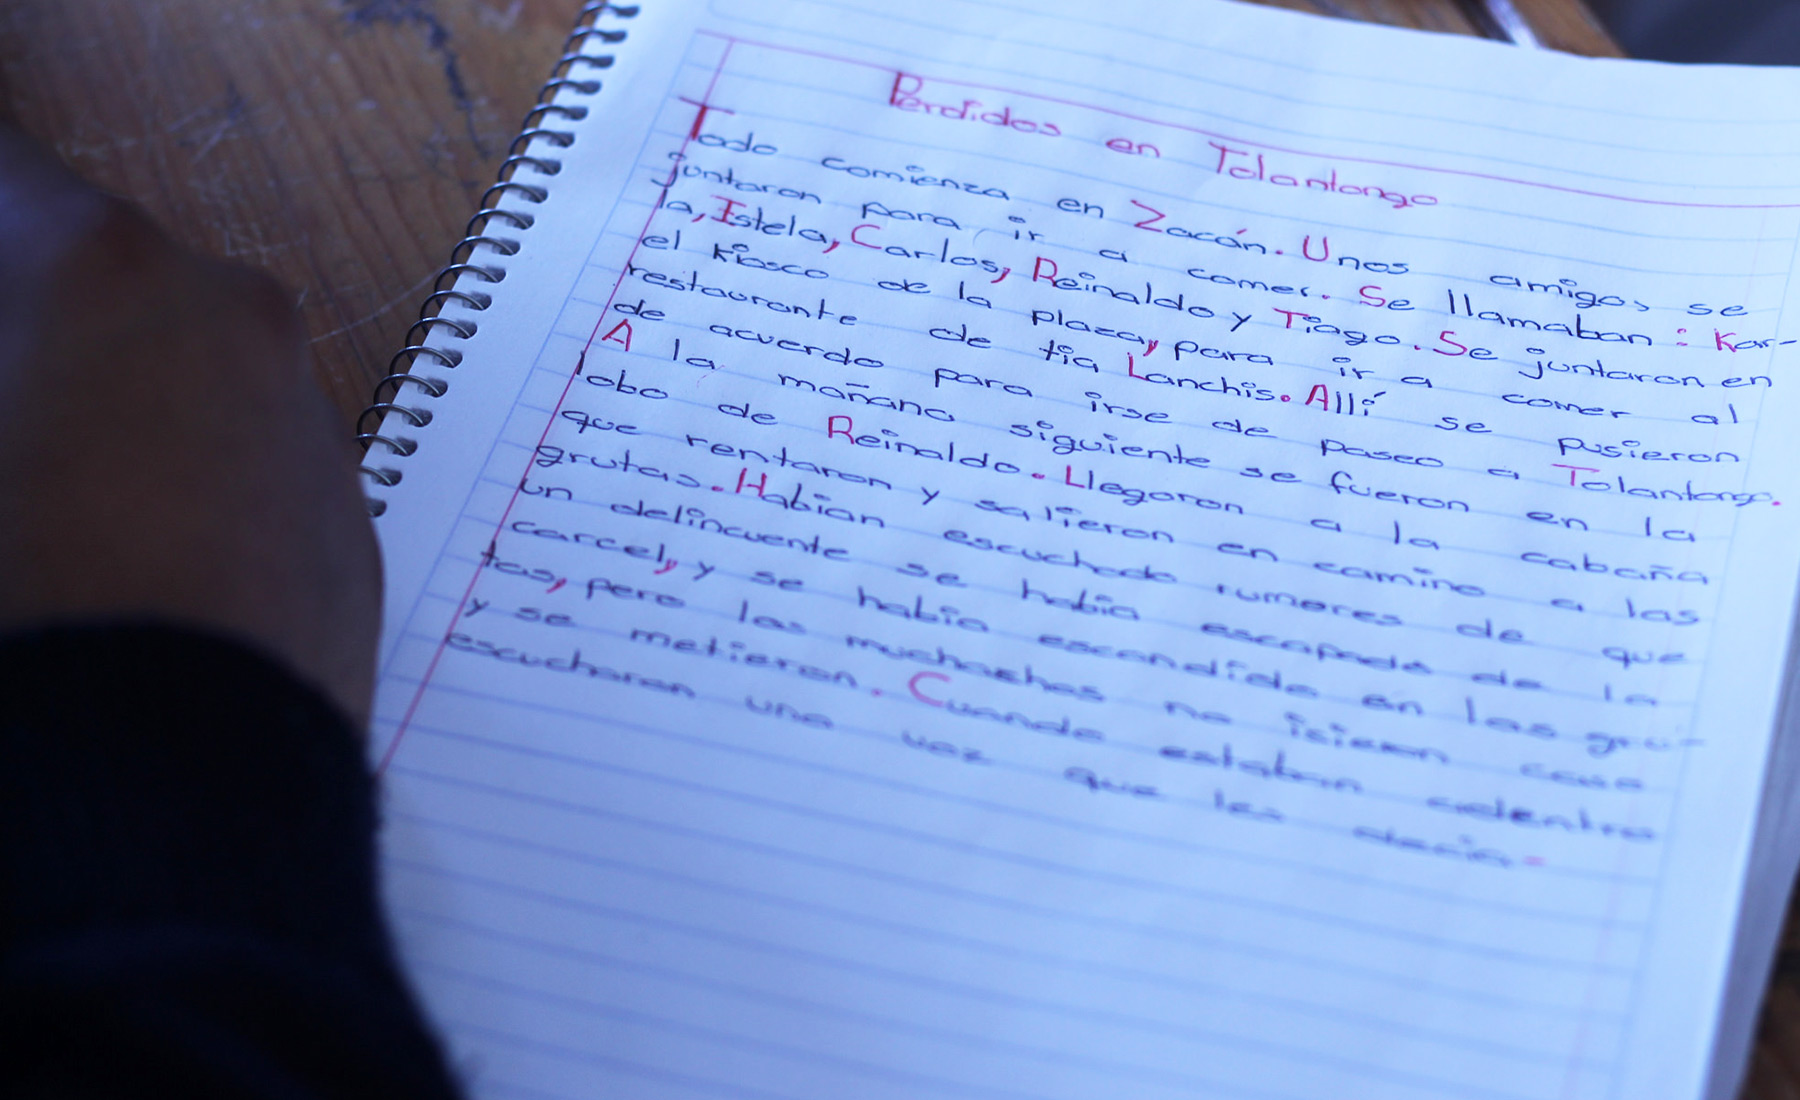 Perdidos en Tolantongo
Todo comienza en Zacán. Unos amigos se
juntaron para ir a comer. Se llamaban: Kar-
la, Istela, Carlos, Reinaldo y Tiago. Se juntaron en
el kiosco de la plaza, para ir a comer al
restaurante de tia Lanchis. Allí se pusieron
de acuerdo para irse de paseo a Tolantongo.
A la mañana siguiente se fueron en la
lobo de Reinaldo. Llegaron a la cabaña
que rentaron y salieron en camino a las
grutas. Habian escuchado rumores de que
un delincuente se habia escapado de la
carcel, y se habia escondido en las gru-
tas, pero los muchachos no icieron caso
y se metieron. Cuando estaban adentro
escucharon una voz que les decia